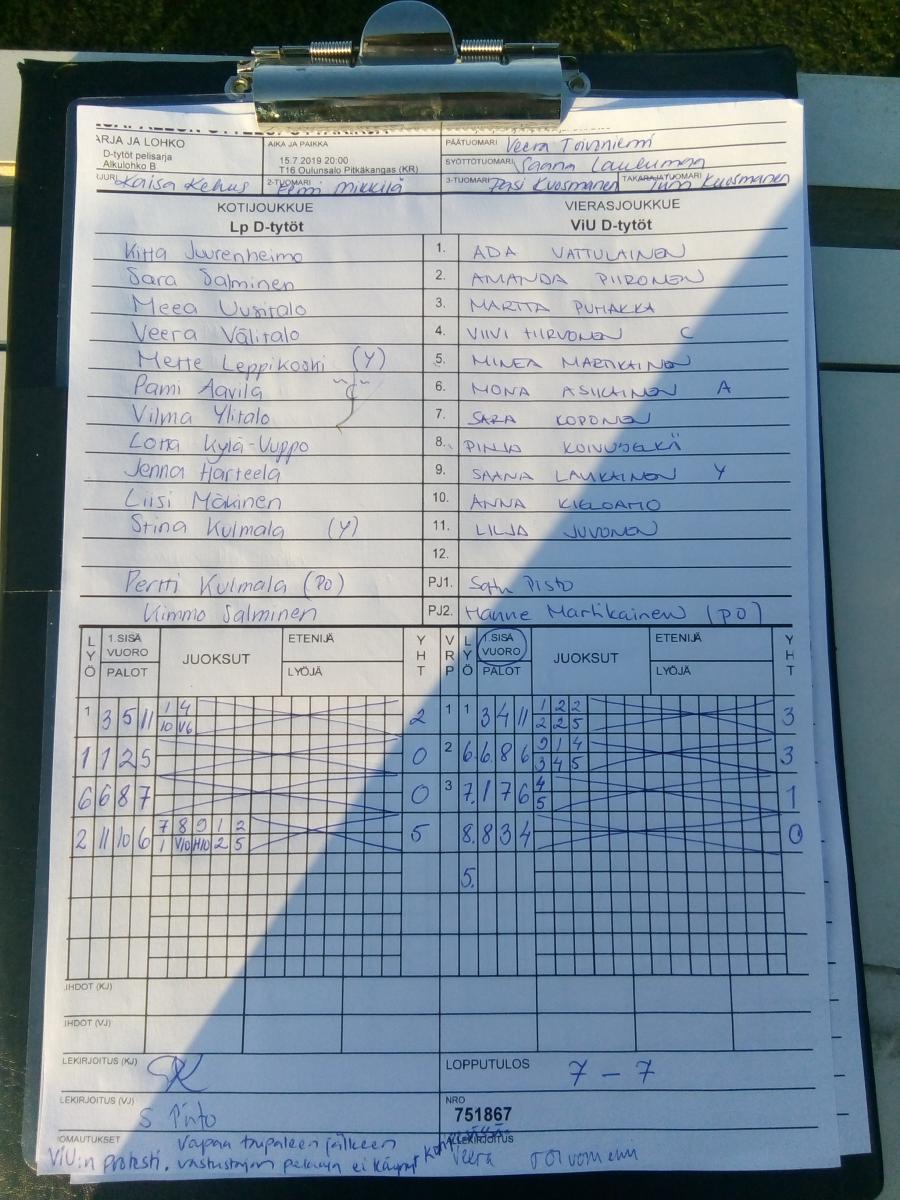 ARJA JA LOHKO
D-tytöt pelisarja
Alkulohko B
AIKA JA PAIKKA
15.7.2019 20:00
T16 Oulunsalo Pitkäkangas (KR)
PÄÄTUOMARI Veera Toivoniemi
SYÖTTÖTUOMARI Saana
Kaisa Kehus
2-TUOMARI Mikkilä
3-TUOMARI Pasi Kuosmanen
TAKARAJATUOMARI Kuosmanen
KOTIJOUKKUE
Lp D-tytöt
VIERASJOUKKUE
ViU D-tytöt
Kitta Juurenheimo 1. ADA VATTULAINEN
Sara Salminen 2. AMANDA PIIRONEN
Meea Uusitalo 3. MARTTA PUHAKKA
Veera Välitalo 4. VIIVI HIRVONEN C
Mette Leppikoski (Y) 5. MINEA MARTIKAINEN
Pami Aavila 6. MONA ASIKAINEN A
Vilma Ylitalo 7. SARA KOPONEN
Lotta Kylä-Vuppo 8. PINJA KOIVUSELKÄ
Jenna Harteela 9. SAANA LAUKAINEN Y
Liisi Mäkinen 10. ANNA KIELOAHO
Stina Kulmala (Y) 11. LILJA JUVONEN
12.
Pertti Kulmala (PO) PJ1. Satu Pisto
Kimmo Salminen PJ2. Hanne Martikainen (PO)
LYÖ 1.SISÄ VUORO PALOT JUOKSUT ETENIJÄ LYÖJÄ YHT VRP LYÖ 1.SISÄ VUORO PALOT JUOKSUT ETENIJÄ LYÖJÄ YHT
1 3 5 11 1 4 2 1 1 3 4 11 1 2 2 3
10 V6 2 2 5
1 1 2 5 0 2 6. 6 8 6 9 1 4 3
3 4 5
6 6 8 7 0 3 7. 1 7 6 4 1
5
2 11 10 6 7 8 9 1 2 5 8. 8 3 4 0
1 V10 H10 2 5
5.
IHDOT (KJ)
IHDOT (VJ)
LEKIRJOITUS (KJ)
LOPPUTULOS 7 – 7
LEKIRJOITUS (VJ) S Pisto
NRO
751867
OMAUTUKSET
ALLEKIRJOITUS
Vapaa taipaleen jälkeen
ViU:n protesti, vastustajan ei käynyt
Veera Toivoniemi